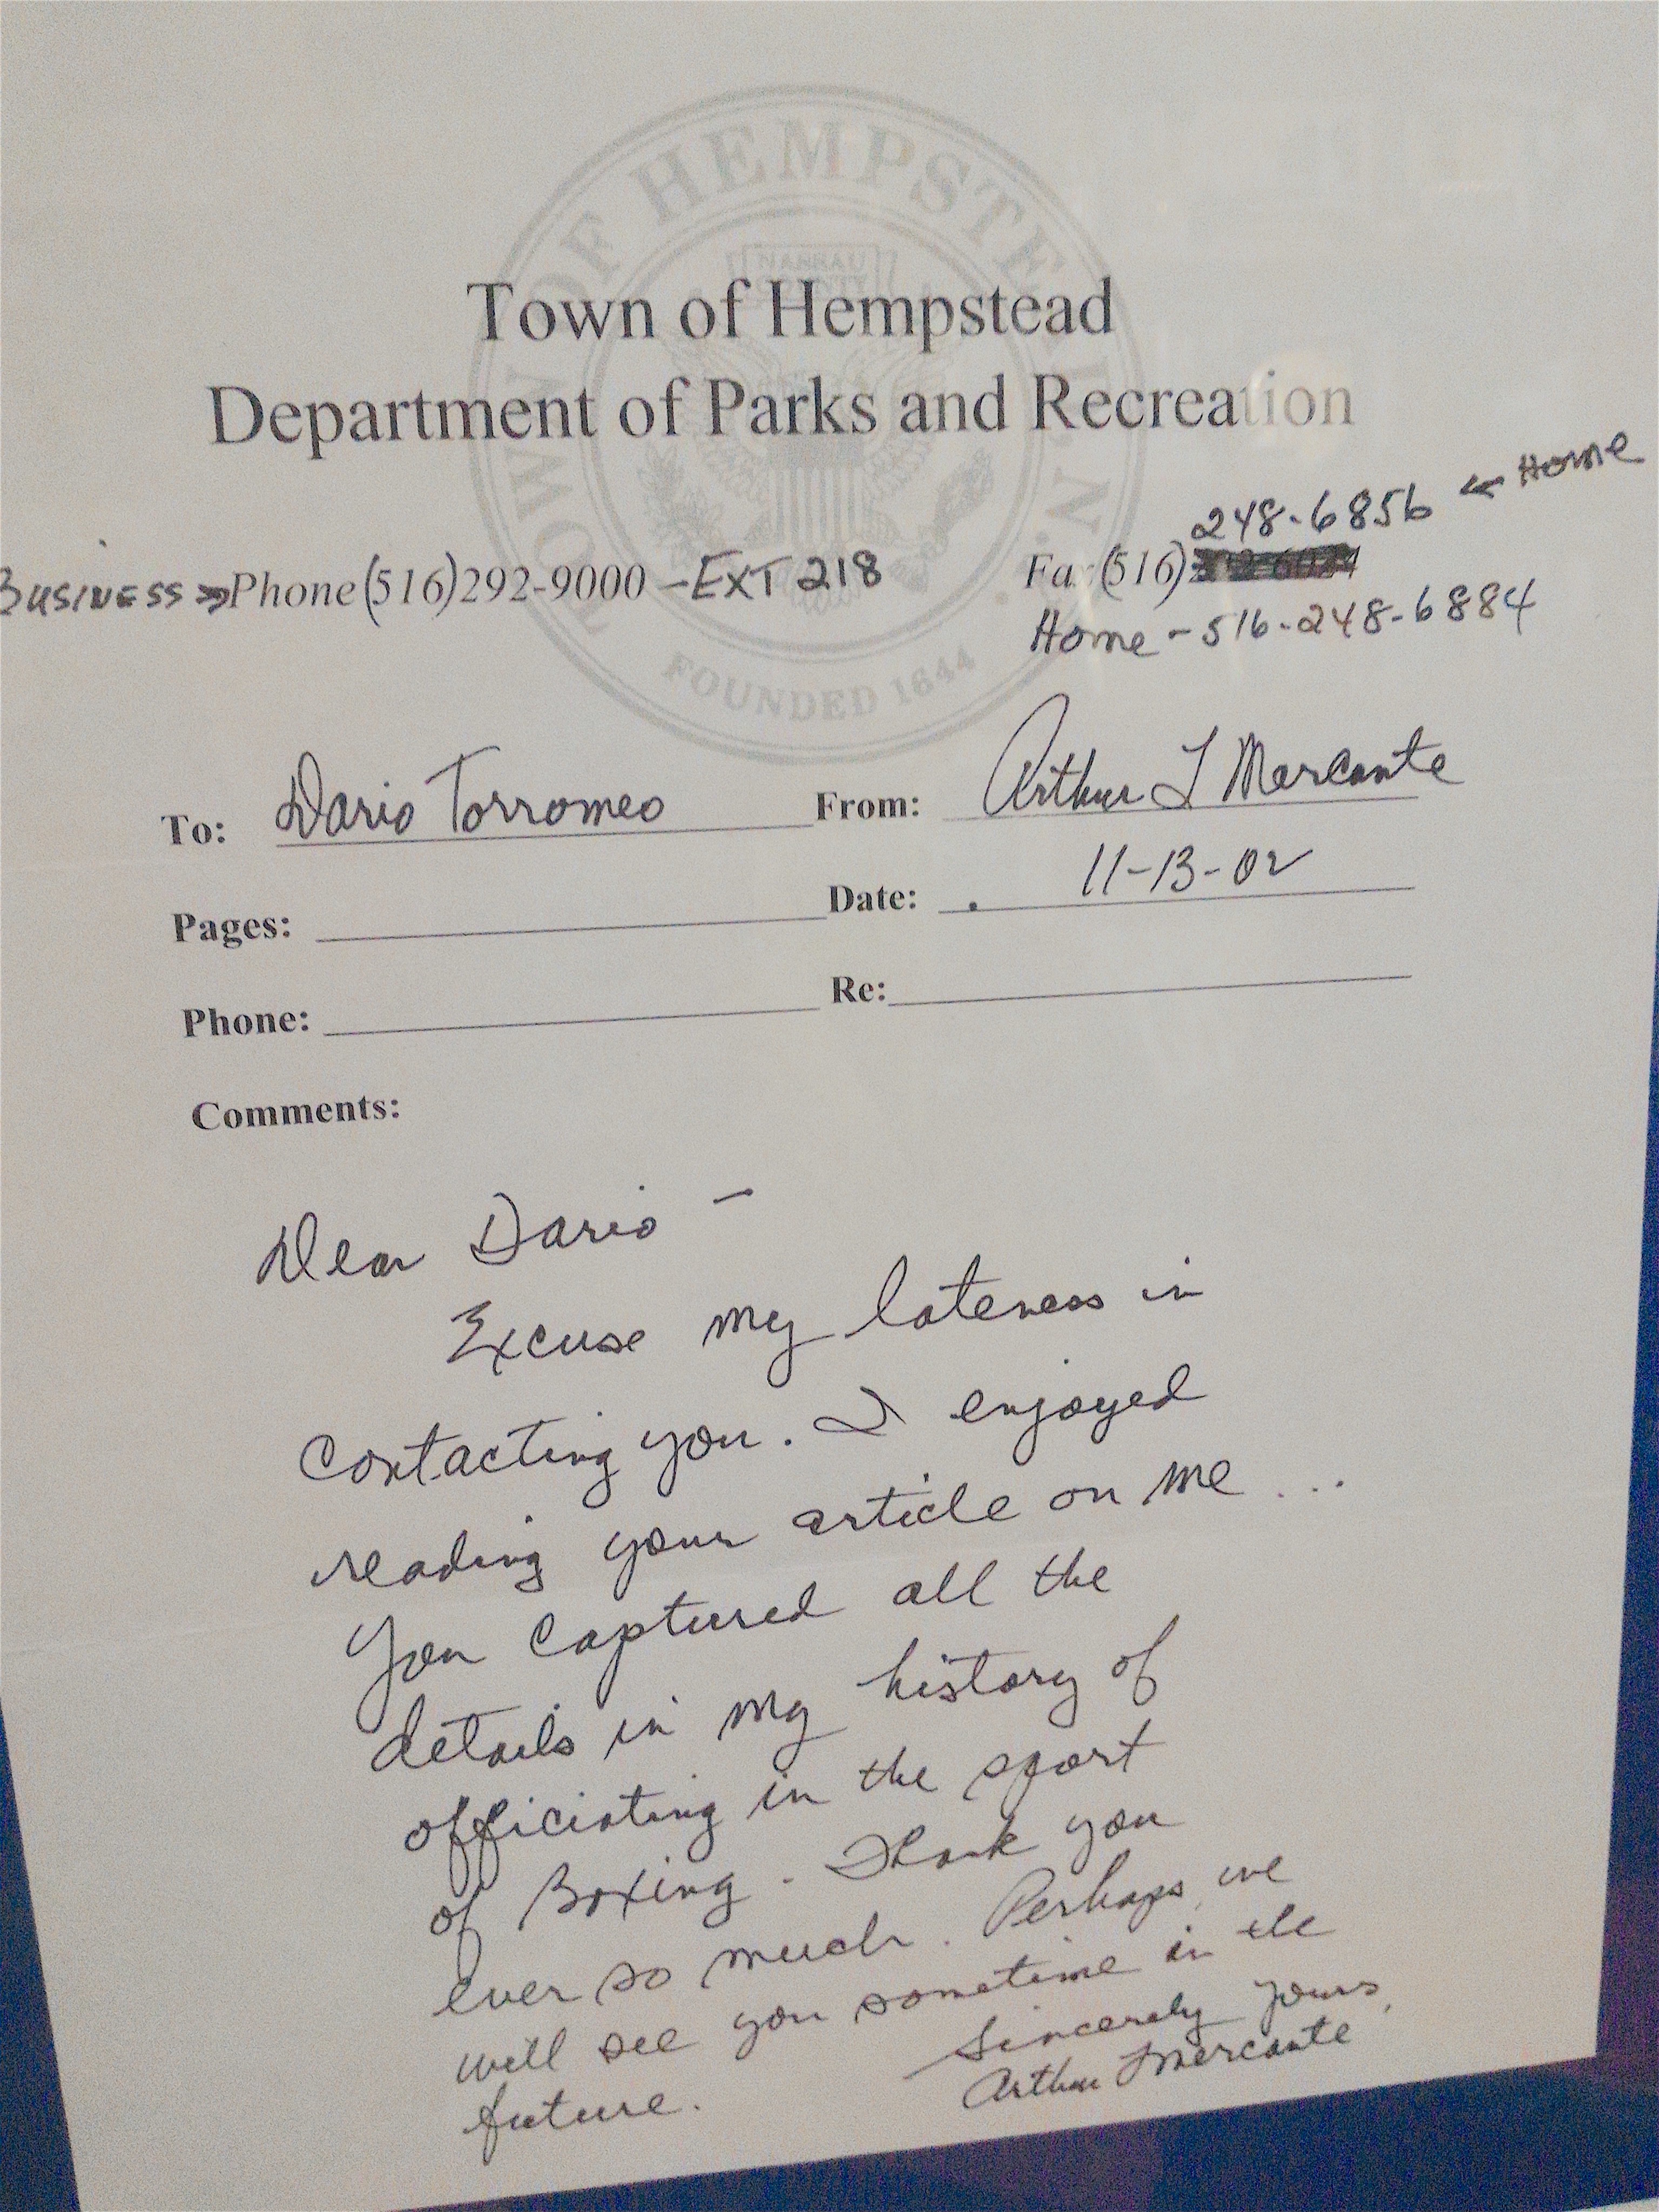 TOWN OF HEMPSTEAD N.Y.
NASSAU
COUNTY
Town of Hempstead
Department of Parks and Recreation
248-6856 ← Home
Business ⇒ Phone (516)292-9000 - EXT 218
Fax (516)
Home - 516-248-6884
FOUNDED 1644
To: Dario Torromeo From: Arthur I Mercante
Pages: Date: 11-13-02
Phone: Re:
Comments:
Dear Dario -
Excuse my lateness in
contacting you. I enjoyed
reading your article on me ...
You captured all the
details in my history of
officiating in the sport
of Boxing. Thank you
ever so much. Perhaps we
will see you sometime in the
future.
Sincerely yours,
Arthur Mercante